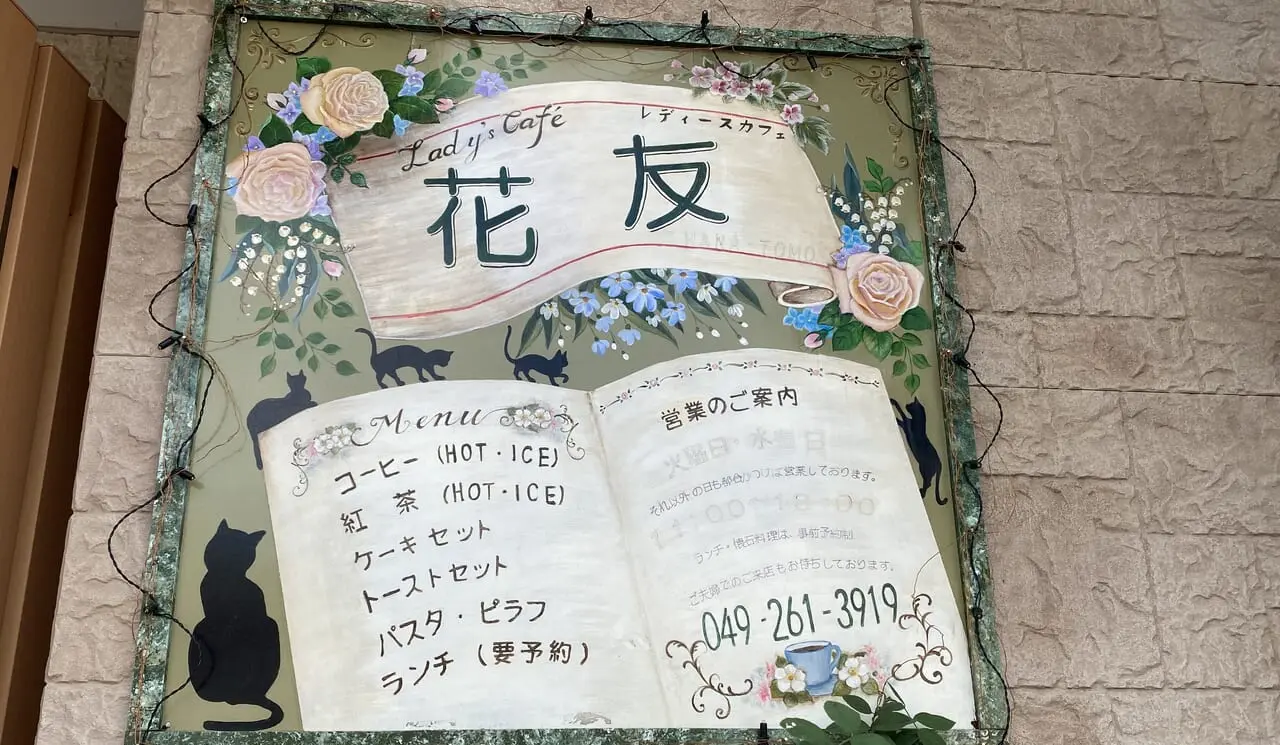 Lady's Café
レディースカフェ
花友
HANA-TOMO
Menu
コーヒー (HOT・ICE)
紅茶 (HOT・ICE)
ケーキセット
トーストセット
パスタ・ピラフ
ランチ (要予約)
営業のご案内
火曜日・水曜日
それ以外の日も都合がつけば営業しております。
ランチ・懐石料理は、事前予約制
ご夫婦でのご来店もお待ちしております。
049-261-3919